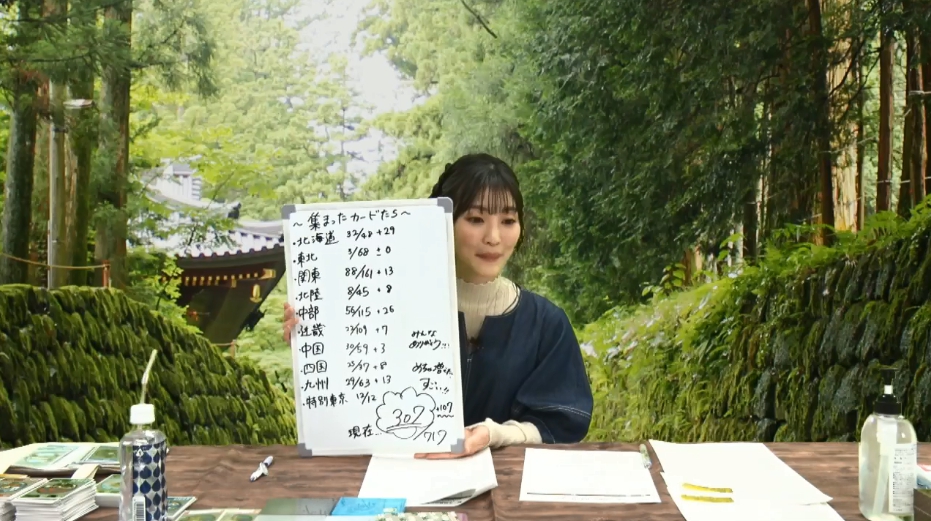 ～集まったカードたち～
・北海道 32/48 +29
・東北 3/68 ±0
・関東 88/161 +13
・北陸 8/45 +8
・中部 56/115 +26
・近畿 23/109 +7
・中国 30/59 +3
・四国 25/37 +8
・九州 29/63 +13
・特別東京 12/12
みんな
ありがとう!!
めっちゃ増えた
すごい!!
現在… 307/717 +107